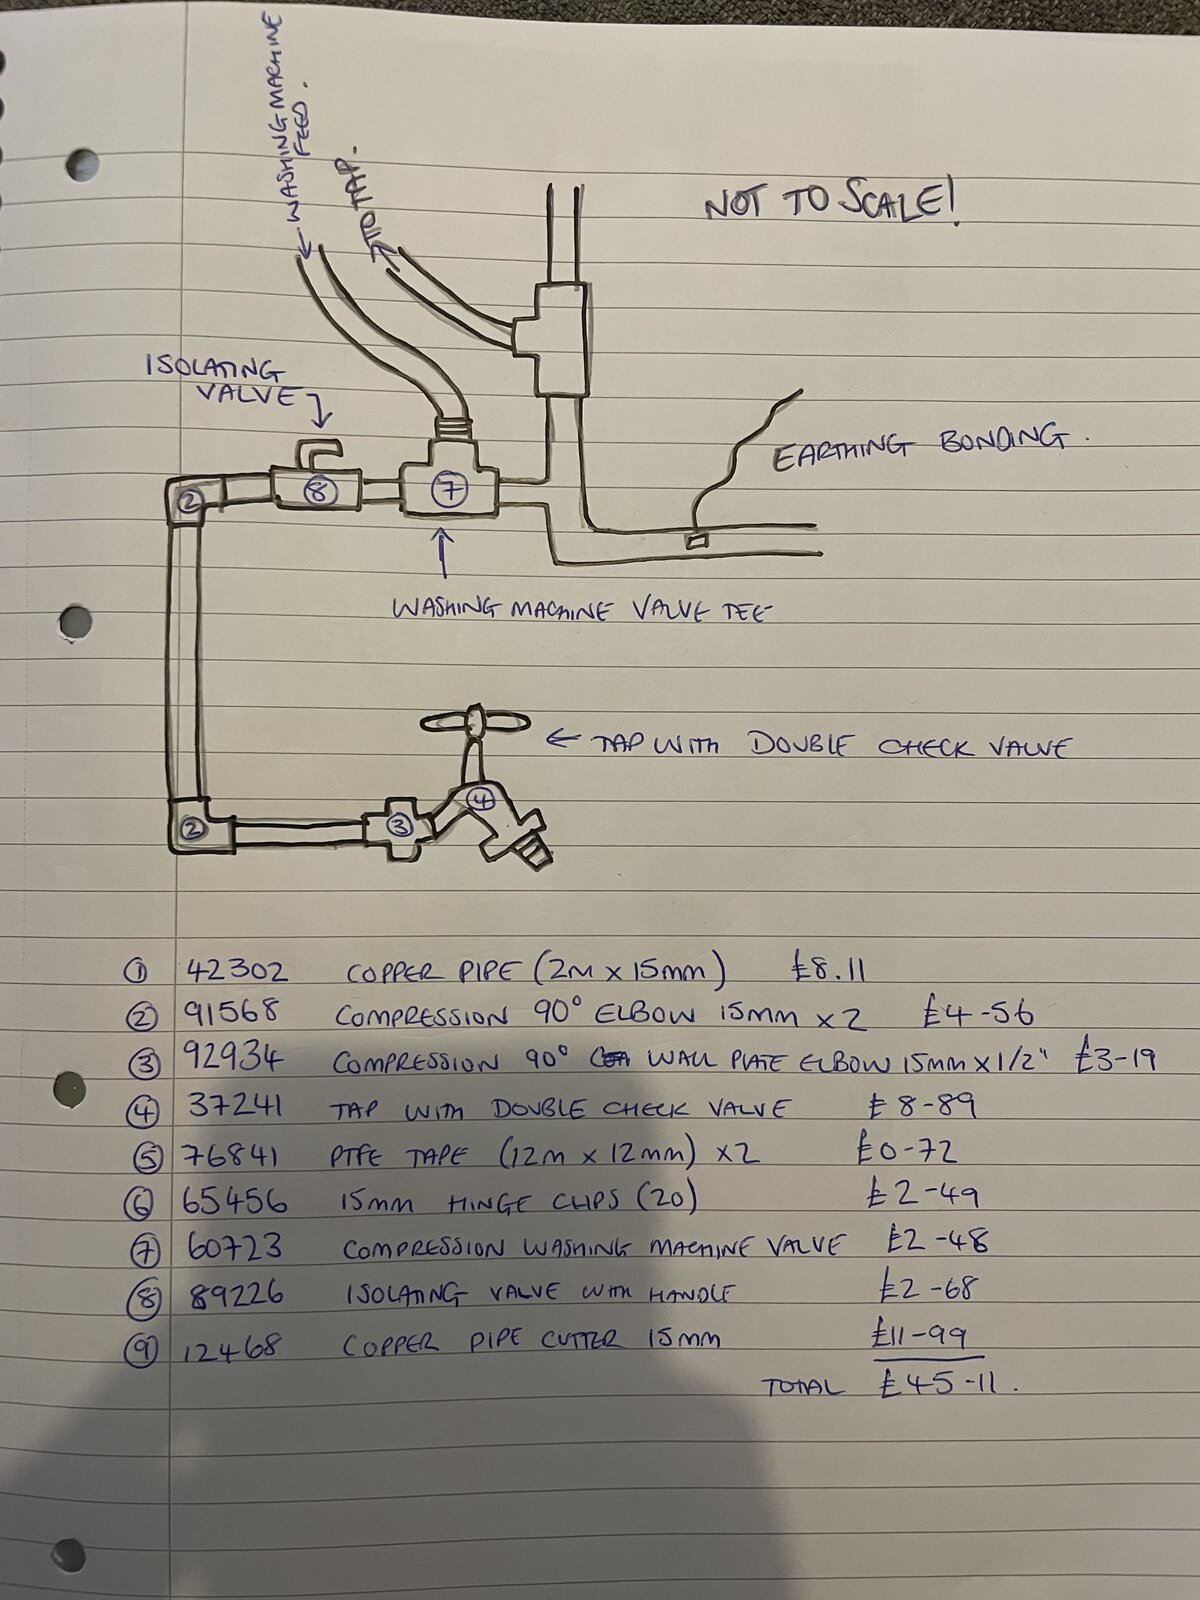 ← WASHING MACHINE
FEED.
TO TAP.
NOT TO SCALE!
ISOLATING
VALVE
EARTHING BONDING.
2
8
7
WASHING MACHINE VALVE TEE
← TAP WITH DOUBLE CHECK VALVE
4
2
3
1 42302 COPPER PIPE (2M x 15MM) £8.11
2 91568 COMPRESSION 90° ELBOW 15MM x2 £4-56
3 92934 COMPRESSION 90° WALL PLATE ELBOW 15MM x 1/2" £3-19
4 37241 TAP WITH DOUBLE CHECK VALVE £8-89
5 76841 PTFE TAPE (12M x 12MM) x2 £0-72
6 65456 15MM HINGE CLIPS (20) £2-49
7 60723 COMPRESSION WASHING MACHINE VALVE £2-48
8 89226 ISOLATING VALVE WITH HANDLE £2-68
9 12468 COPPER PIPE CUTTER 15MM £11-99
TOTAL £45-11.